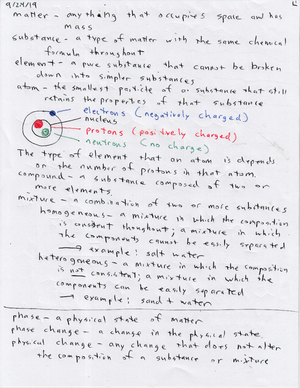 9/24/19
matter - anything that occupies space and has
mass
substance - a type of matter with the same chemical
formula throughout
element - a pure substance that cannot be broken
down into simpler substances
atom - the smallest particle of a substance that still
retains the properties of that substance
electrons (negatively charged)
nucleus
protons (positively charged)
neutrons (no charge)
The type of element that an atom is depends
on the number of protons in that atom.
compound - a substance composed of two or
more elements
mixture - a combination of two or more substances
homogeneous - a mixture in which the composition
is consistent throughout; a mixture in which
the components cannot be easily separated
→ example: salt water
heterogeneous - a mixture in which the composition
is not consistent; a mixture in which the
components can be easily separated
→ example: sand + water
phase - a physical state of matter
phase change - a change in the physical state
physical change - any change that does not alter
the composition of a substance or mixture